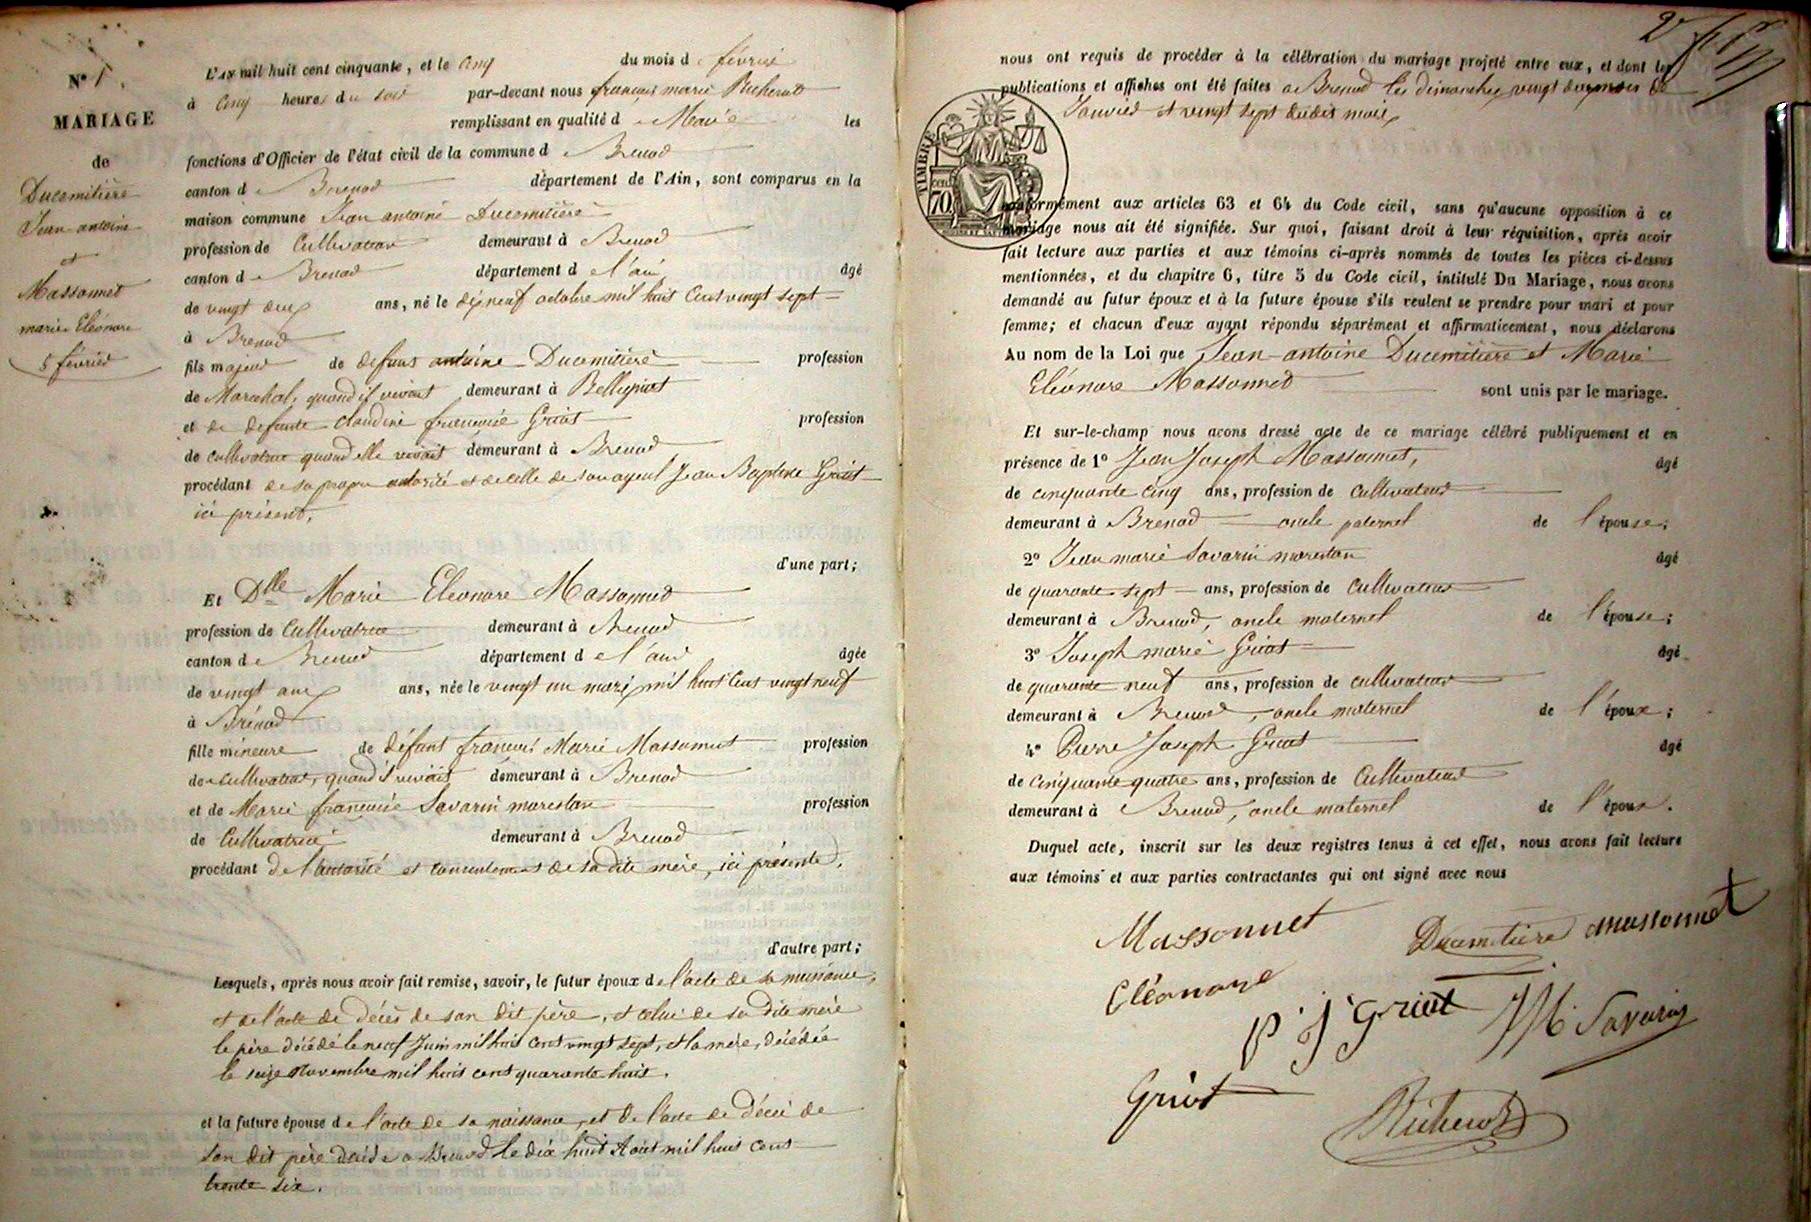 N° 1.
MARIAGE
de
Ducemetière
Jean antoine
et
Massonnet
marie Eléonore
5 février
L'AN mil huit cent cinquante, et le cinq du mois de février
à cinq heures du soir par-devant nous françois marie Richerot
remplissant en qualité de Maire les
fonctions d'Officier de l'état civil de la commune de Brenod
canton de Brenod département de l'Ain, sont comparus en la
maison commune Jean antoine Ducemetière
profession de Cultivateur demeurant à Brenod
canton de Brenod département de l'ain âgé
de vingt deux ans, né le dixneuf octobre mil huit Cent vingt sept
à Brenod
fils majeur de défunt antoine Ducemetière profession
de Marechal, quand il vivait demeurant à Bellignat
et de defunte claudine françoise Griot profession
de cultivatrice quand elle vivait demeurant à Brenod
procédant de sa propre autorité et de celle de son ayeul Jean Baptiste Griot
ici présent,
d'une part;
Et Dlle Marie Eléonore Massonnet
profession de Cultivatrice demeurant à Brenod
canton de Brenod département de l'ain âgée
de vingt ans, née le vingt un mars mil huit Cent vingt neuf
à Brénod
fille mineure de défunt françois Marie Massonnet profession
de cultivateur, quand il vivait demeurant à Brenod
et de Marie françoise Savarin marestan profession
de Cultivatrice demeurant à Brenod
procédant de l'autorité et consentement de sa dite mère, ici présente,
d'autre part;
Lesquels, après nous avoir fait remise, savoir, le futur époux de l'acte de sa naissance,
et de l'acte de décès de son dit père, et celui de sa dite mère
le père décédé le neuf Juin mil huit cent vingt sept, et la mère, décédée
le seize Novembre mil huit cent quarante huit.
et la future épouse de l'acte de sa naissance, et de l'acte de décès de
son dit père décédé a Brenod le dix huit Août mil huit cent
trente six.
nous ont requis de procéder à la célébration du mariage projeté entre eux, et dont les
publications et affiches ont été faites a Brenod les dimanches vingt de
Janvier et vingt sept dudit mois,
TIMBRE
70
conformément aux articles 63 et 64 du Code civil, sans qu'aucune opposition à ce
mariage nous ait été signifiée. Sur quoi, faisant droit à leur réquisition, après avoir
fait lecture aux parties et aux témoins ci-après nommés de toutes les pièces ci-dessus
mentionnées, et du chapitre 6, titre 5 du Code civil, intitulé DU MARIAGE, nous avons
demandé au futur époux et à la future épouse s'ils veulent se prendre pour mari et pour
femme; et chacun d'eux ayant répondu séparément et affirmativement, nous déclarons
AU NOM DE LA LOI que Jean antoine Ducemetière et Marie
Eléonore Massonnet sont unis par le mariage.
Et sur-le-champ nous avons dressé acte de ce mariage célébré publiquement et en
présence de 1° Jean Joseph Massonnet, âgé
de cinquante cinq ans, profession de cultivateur
demeurant à Brenod oncle paternel de l'épouse;
2° Jean marie Savarin marestan âgé
de quarante sept ans, profession de cultivateur
demeurant à Brenod, oncle maternel de l'épouse;
3° Joseph marie Griot âgé
de quarante neuf ans, profession de cultivateur
demeurant à Brenod, oncle maternel de l'époux;
4° Pierre Joseph Griot âgé
de cinquante quatre ans, profession de Cultivateur
demeurant à Brenod, oncle maternel de l'époux.
Duquel acte, inscrit sur les deux registres tenus à cet effet, nous avons fait lecture
aux témoins et aux parties contractantes qui ont signé avec nous
Massonnet Ducemetière massonnet
Eléonore
P J Griot JM Savarin
Griot
Richerot